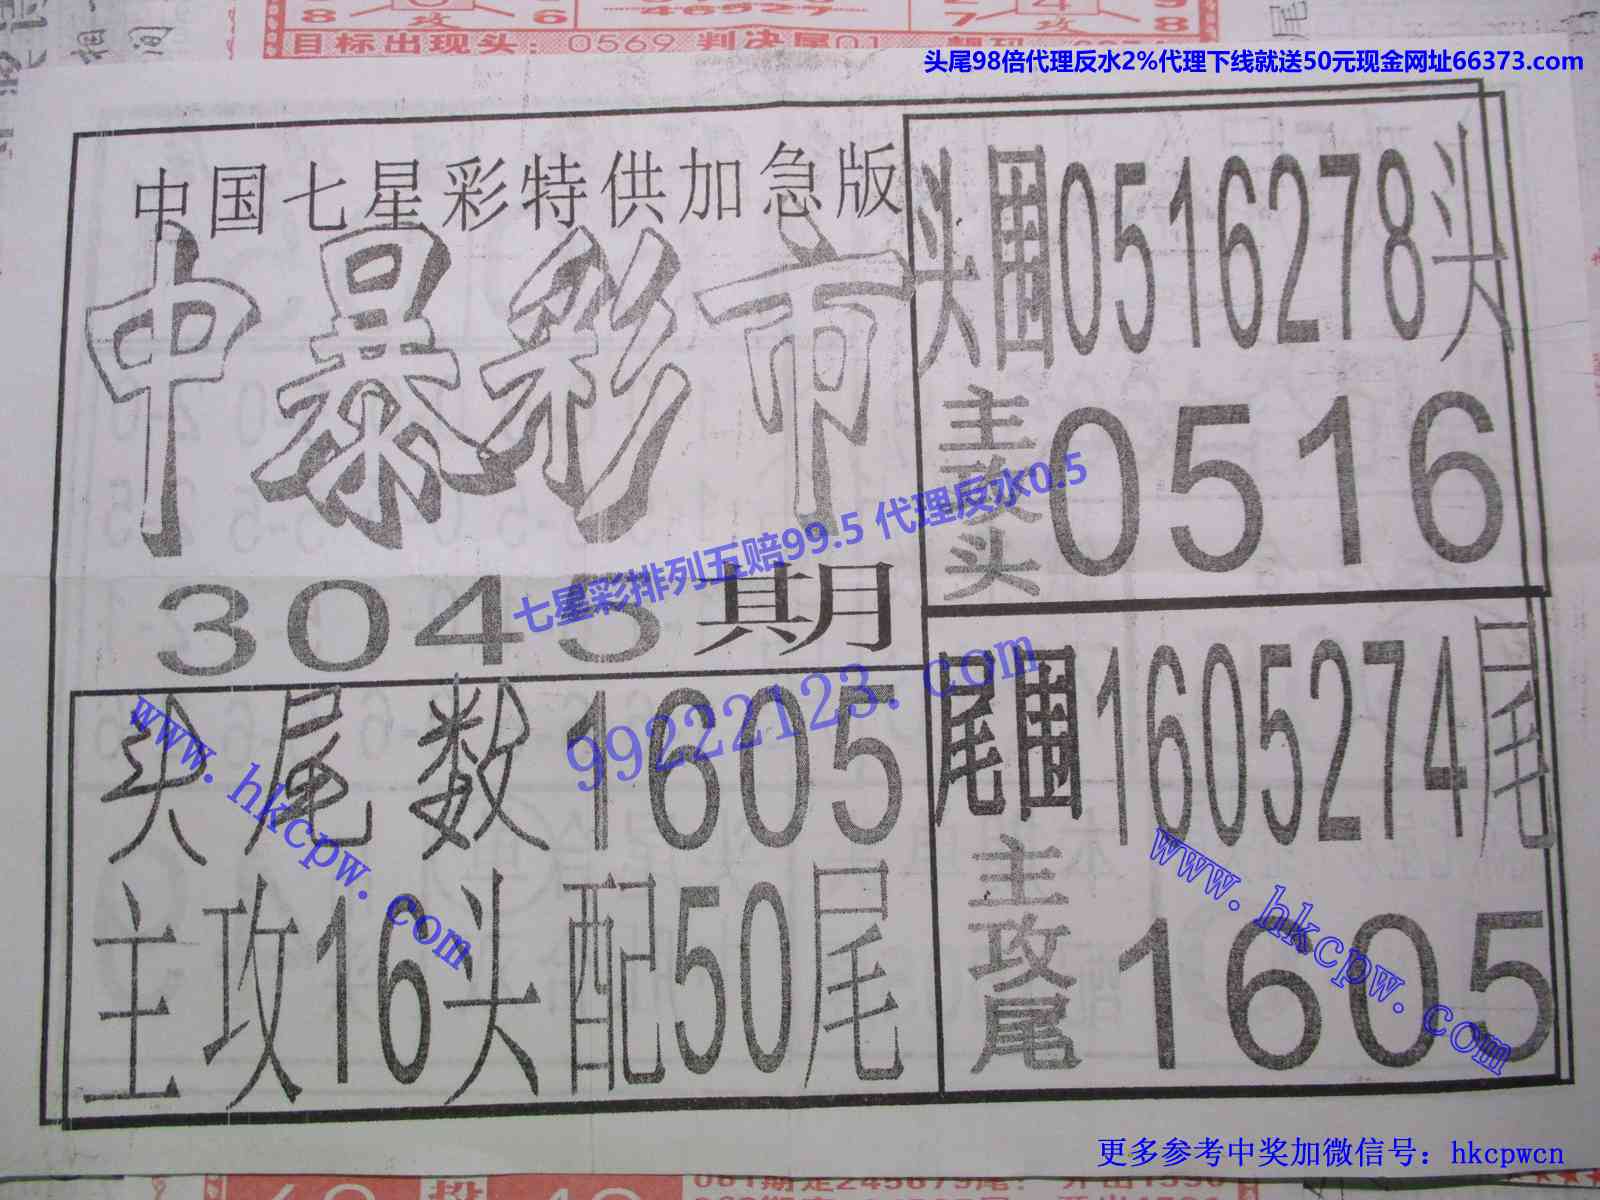 相
间
尾
目标出现头：0569 判决尾01
头尾98倍代理反水2%代理下线就送50元现金网址66373.com
中国七星彩特供加急版
中暴彩市
3045期
头围0516278头
主攻头0516
七星彩排列五赔99.5 代理反水0.5
99222123.com
头尾数1605
主攻16头配50尾
尾围1605274尾
主攻尾1605
www.hkcpw.com
www.hkcpw.com
更多参考中奖加微信号：hkcpwcn